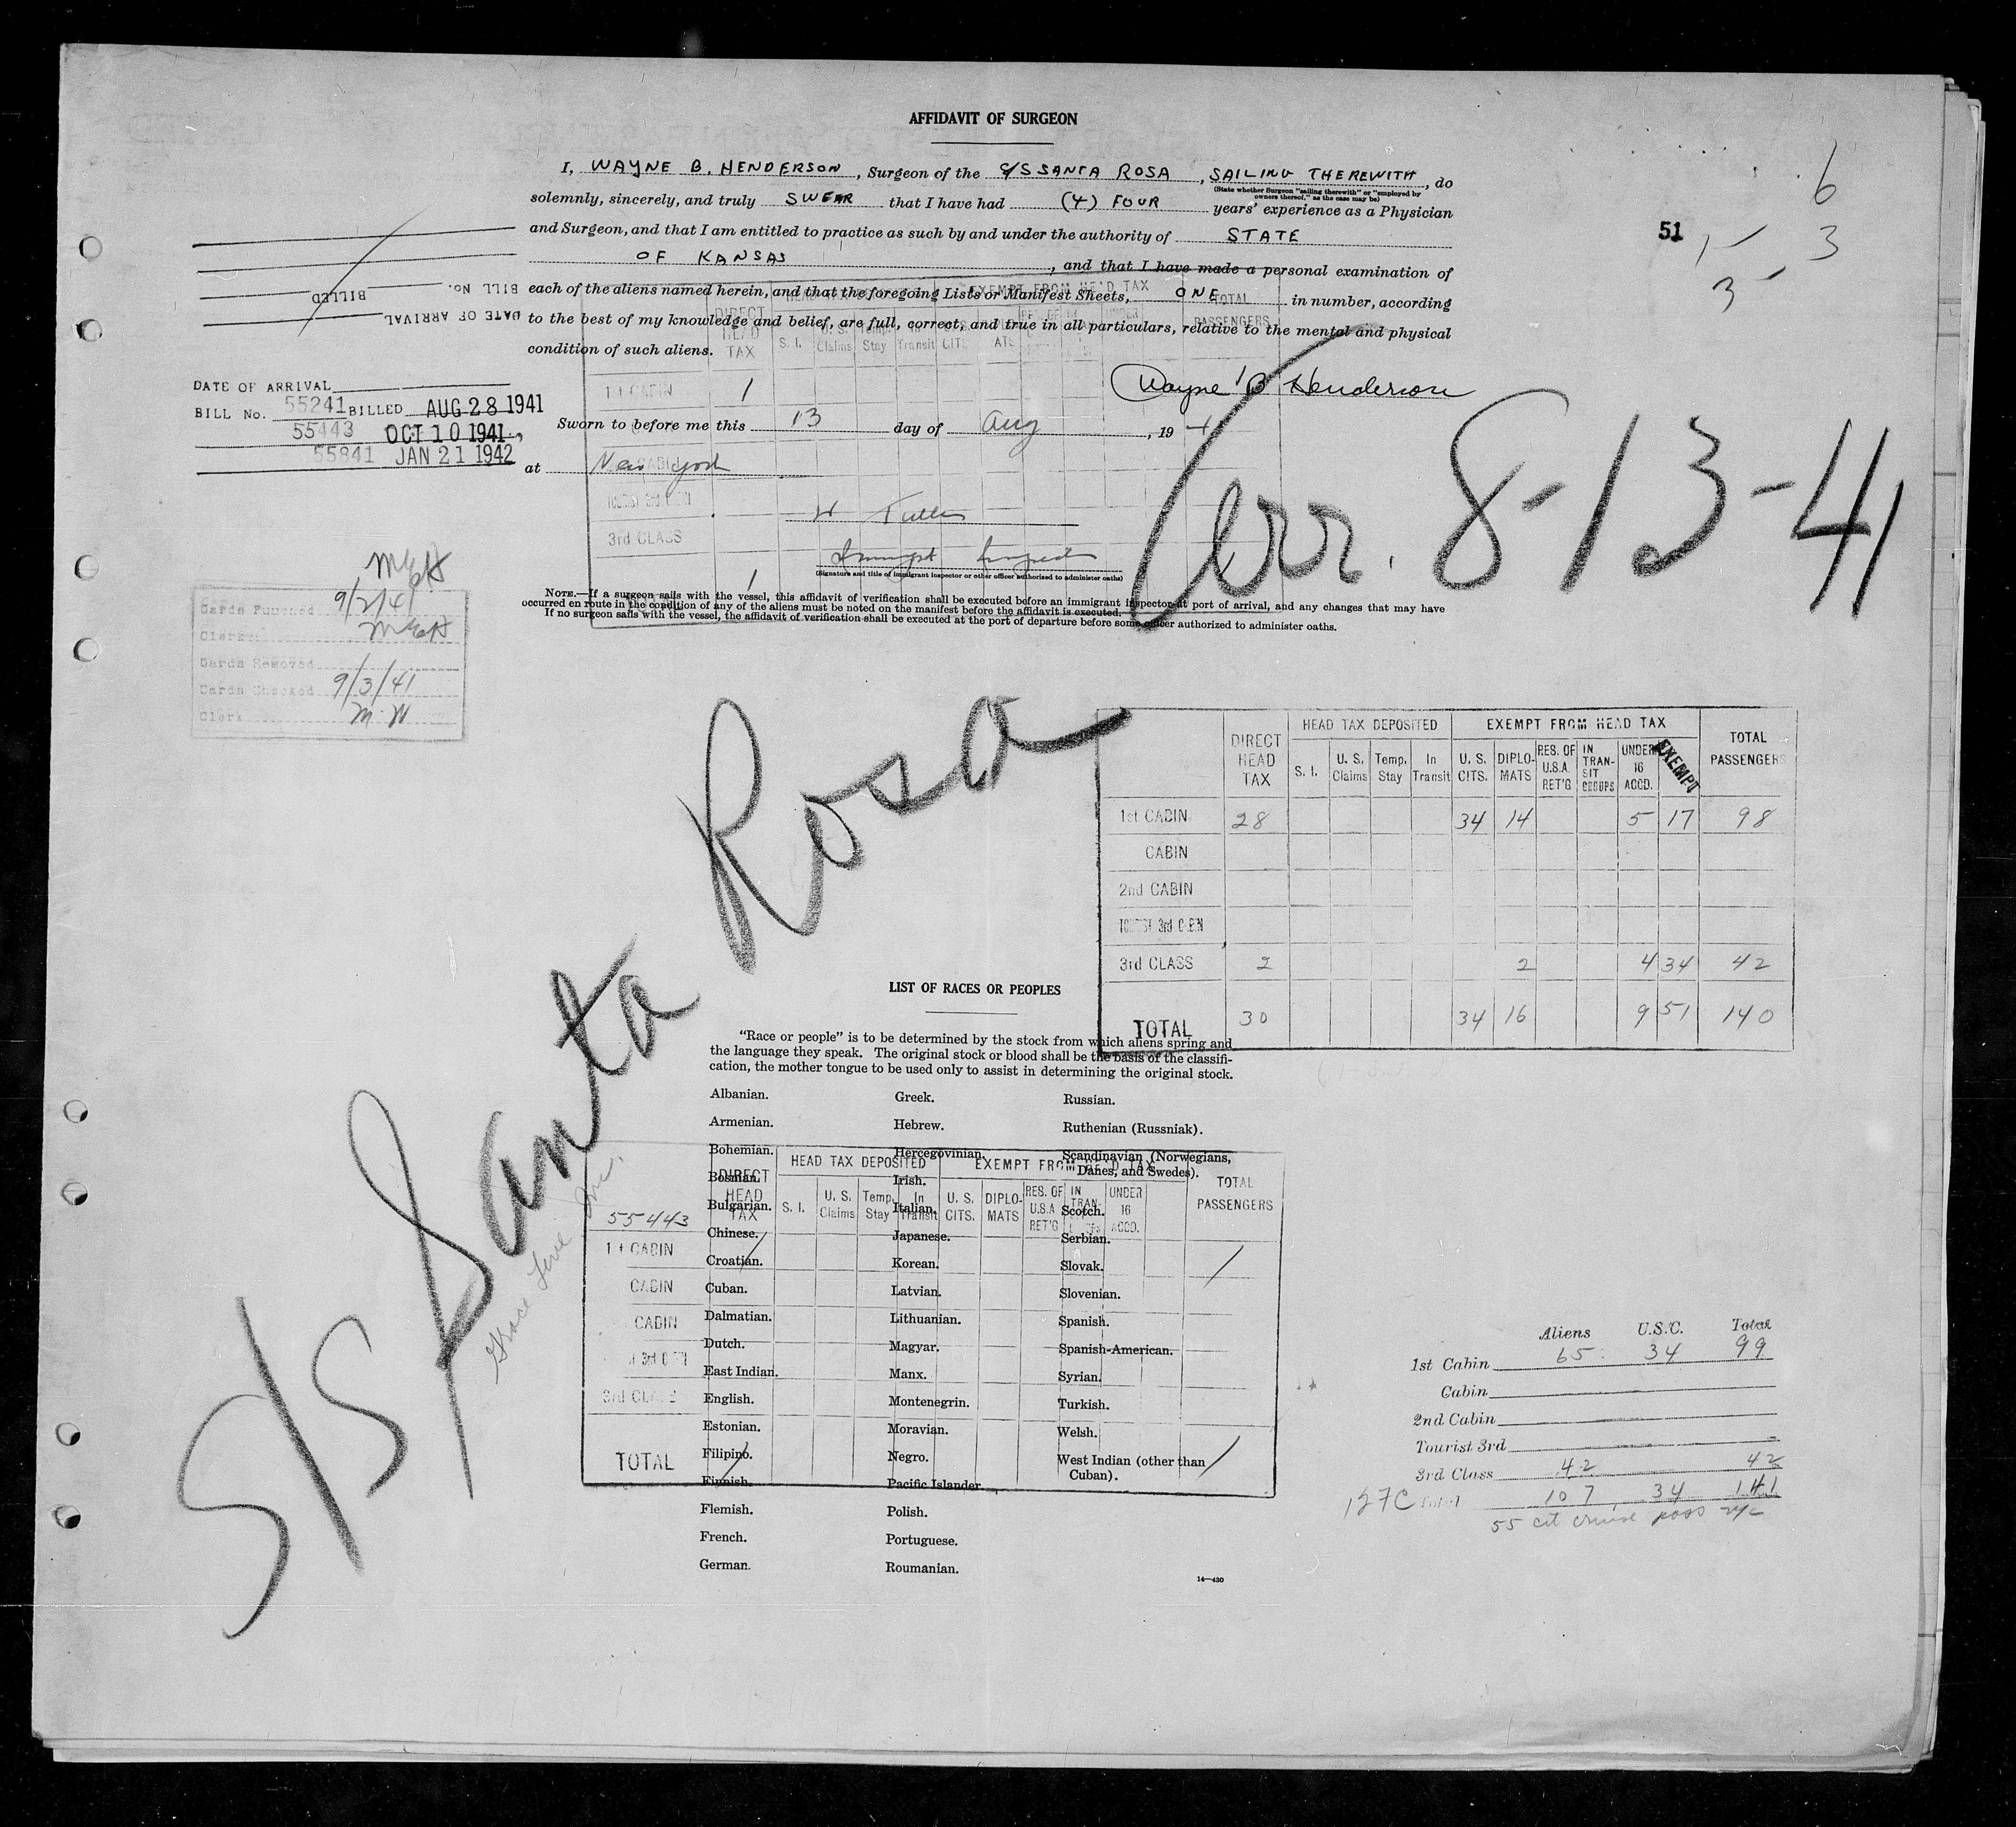 AFFIDAVIT OF SURGEON
I, WAYNE B. HENDERSON, Surgeon of the S/S SANTA ROSA, SAILING THEREWITH, do
(State whether Surgeon "sailing therewith" or "employed by
owners thereof," as the case may be)
solemnly, sincerely, and truly SWEAR that I have had (4) FOUR years' experience as a Physician
and Surgeon, and that I am entitled to practice as such by and under the authority of STATE
OF KANSAS, and that I have made a personal examination of
each of the aliens named herein, and that the foregoing Lists or Manifest Sheets, ONE in number, according
to the best of my knowledge and belief, are full, correct, and true in all particulars, relative to the mental and physical
condition of such aliens.
Wayne B Henderson
Sworn to before me this 13 day of Aug, 19 4
at New York
(Signature and title of immigrant inspector or other officer authorized to administer oaths)
NOTE.—If a surgeon sails with the vessel, this affidavit of verification shall be executed before an immigrant inspector at port of arrival, and any changes that may have
occurred en route in the condition of any of the aliens must be noted on the manifest before the affidavit is executed.
If no surgeon sails with the vessel, the affidavit of verification shall be executed at the port of departure before some officer authorized to administer oaths.
6
51
1 3
3
BILL NO. BILLED
DATE OF ARRIVAL
DATE OF ARRIVAL
BILL No. 55241 BILLED AUG 28 1941
55443 OCT 10 1941
55841 JAN 21 1942
EXEMPT FROM HEAD TAX
DIRECT HEAD TAX
S. I. U. S. Claims Temp. Stay In Transit
TOTAL PASSENGERS
1st CABIN 1
CABIN
3rd CLASS
1
Arr. 8-13-41
Cards Punched 9/2/41
Clerk
Cards Removed
Cards Checked 9/3/41
Clerk M W
S/S Santa Rosa
Grace Line Inc.
HEAD TAX DEPOSITED EXEMPT FROM HEAD TAX
DIRECT HEAD TAX S. I. U. S. Claims Temp. Stay In Transit U. S. CITS. DIPLOMATS RES. OF U.S.A. RET'G IN TRANSIT GROUPS UNDER 16 ACCD. EXEMPT TOTAL PASSENGERS
1st CABIN 28 34 14 5 17 98
CABIN
2nd CABIN
TOURIST 3rd CABIN
3rd CLASS 2 2 4 34 42
TOTAL 30 34 16 9 51 140
LIST OF RACES OR PEOPLES
"Race or people" is to be determined by the stock from which aliens spring and
the language they speak. The original stock or blood shall be the basis of the classifi-
cation, the mother tongue to be used only to assist in determining the original stock.
Albanian.
Armenian.
Bohemian.
Bosnian.
Bulgarian.
Chinese.
Croatian.
Cuban.
Dalmatian.
Dutch.
East Indian.
English.
Estonian.
Filipino.
Finnish.
Flemish.
French.
German.
Greek.
Hebrew.
Hercegovinian.
Irish.
Italian.
Japanese.
Korean.
Latvian.
Lithuanian.
Magyar.
Manx.
Montenegrin.
Moravian.
Negro.
Pacific Islander.
Polish.
Portuguese.
Roumanian.
Russian.
Ruthenian (Russniak).
Scandinavian (Norwegians,
Danes, and Swedes).
Scotch.
Serbian.
Slovak.
Slovenian.
Spanish.
Spanish-American.
Syrian.
Turkish.
Welsh.
West Indian (other than
Cuban).
14—430
HEAD TAX DEPOSITED EXEMPT FROM HEAD TAX
DIRECT HEAD TAX S. I. U. S. Claims Temp. Stay In Transit U. S. CITS. DIPLOMATS RES. OF U.S.A RET'G IN TRAN UNDER 16 ACCD. TOTAL PASSENGERS
55443
1st CABIN 1 1
CABIN
CABIN
3rd CABIN
3rd CLASS
TOTAL 1 1
Aliens U.S.C. Total
1st Cabin 65 34 99
Cabin
2nd Cabin
Tourist 3rd
3rd Class 42 42
127C Total 107 34 141
55 cit cruise pass